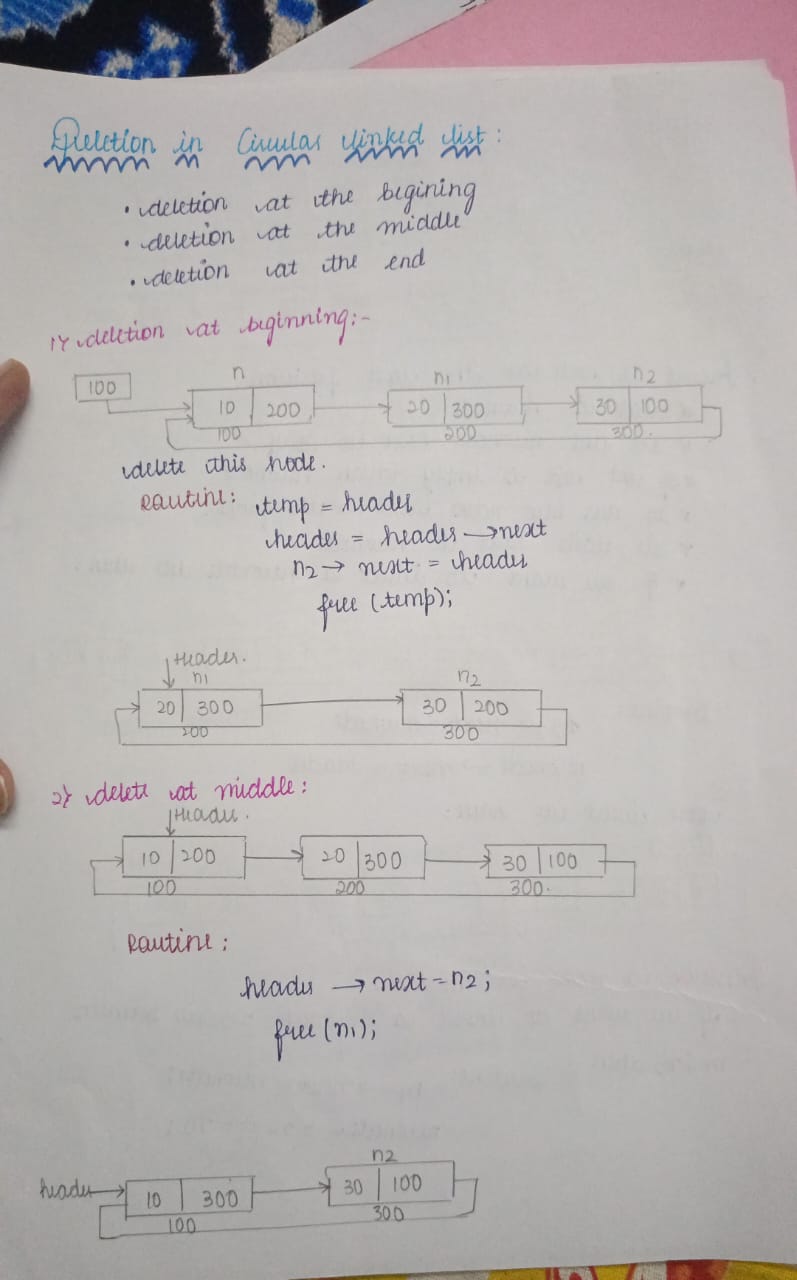 Deletion in Circular linked list :
• deletion at the begining
• deletion at the middle
• deletion at the end
1} deletion at beginning:-
n n1 n2
100
10 200 20 300 30 100
100 200 300.
delete this node.
Routine: temp = header
header = header → next
n2 → next = header
free (temp);
Header.
n1 n2
20 300 30 200
200 300
2} delete at middle :
Header.
10 200 20 300 30 100
100 200 300.
Routine :
header → next = n2 ;
free (n1);
n2
header 10 300 30 100
100 300